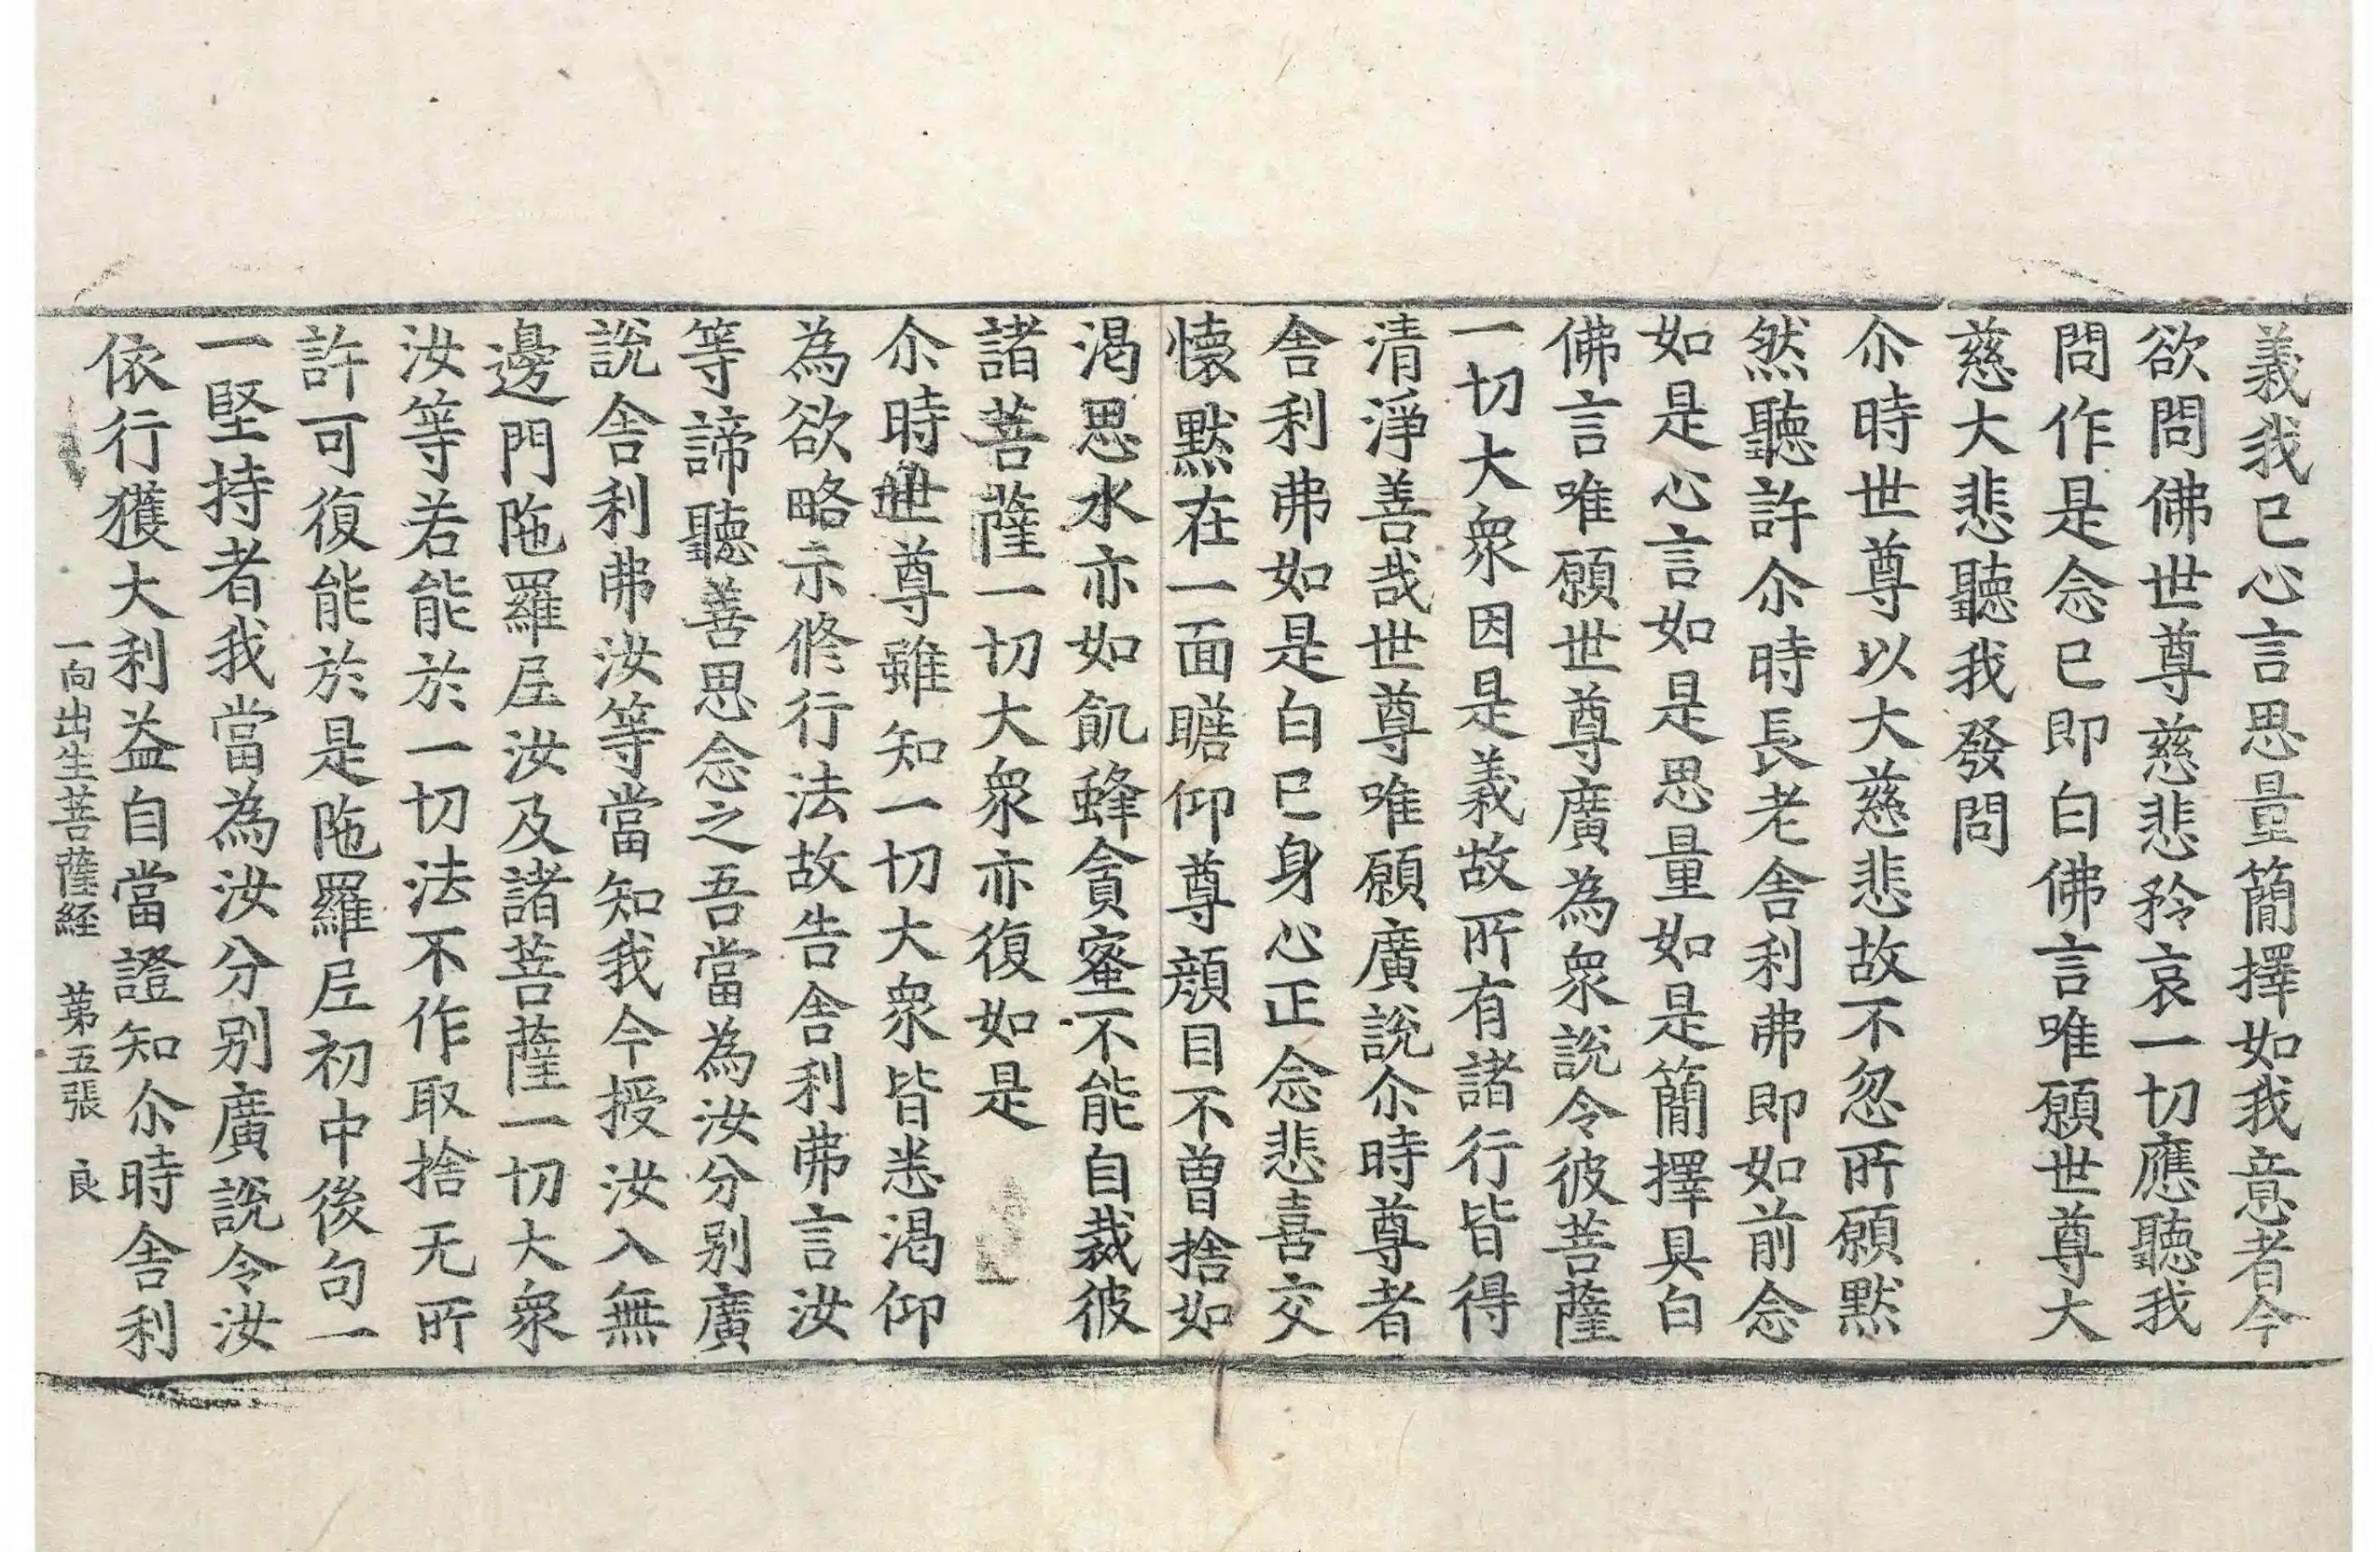 義我已心言思量簡擇如我意者今
欲問佛世尊慈悲矜哀一切應聽我
問作是念已即白佛言唯願世尊大
慈大悲聽我發問
尒時世尊以大慈悲故不忽所願黙
然聽許尒時長老舎利弗即如前念
如是心言如是思量如是簡擇具白
佛言唯願世尊廣為衆說令彼菩薩
一切大衆因是義故所有諸行皆得
清淨善哉世尊唯願廣說尒時尊者
舎利弗如是白已身心正念悲喜交
懷黙在一面瞻仰尊顔目不曽捨如
渴思水亦如飢蜂貪蜜不能自裁彼
諸菩薩一切大衆亦復如是
尒時世尊雖知一切大衆皆悉渴仰
為欲略示修行法故告舎利弗言汝
等諦聽善思念之吾當為汝分别廣
說舎利弗汝等當知我今授汝入無
邊門陁羅𡰱汝及諸菩薩一切大衆
汝等若能於一切法不作取捨无所
許可復能於是陁羅𡰱初中後句一
一堅持者我當為汝分别廣說令汝
依行獲大利益自當證知尒時舎利
一向出生菩薩経　苐五張　良